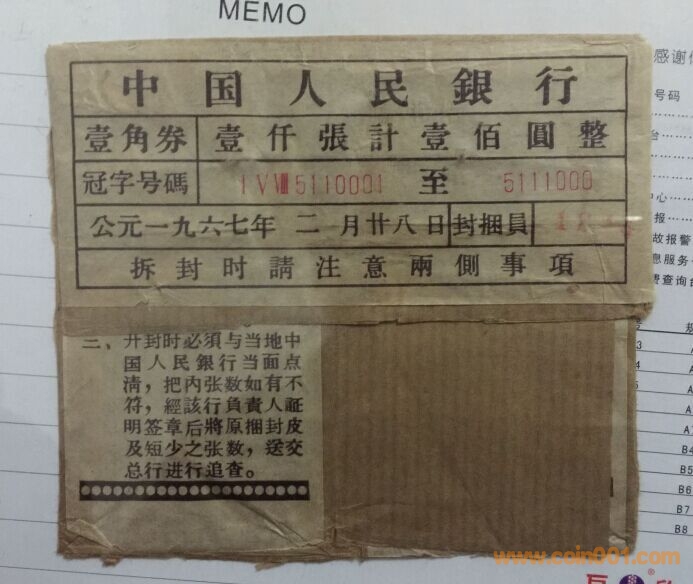 MEMO
中国人民銀行
壹角券 壹仟張計壹佰圓整
冠字号碼 I V Ⅷ 5110001 至 5111000
公元一九六七年 二月廿八日 封捆員
拆封时請注意兩側事項
三、开封时必須与当地中
国人民銀行当面点
清，把内张数如有不
符，經該行負責人証
明签章后將原捆封皮
及短少之张数，送交
总行进行追查。
感谢
号码
台
中心
报
故报警
息服务
费查询台
号
3
4
5
A
A
A
A7
B4
B5
B6
B7
B8
www.coin001.com